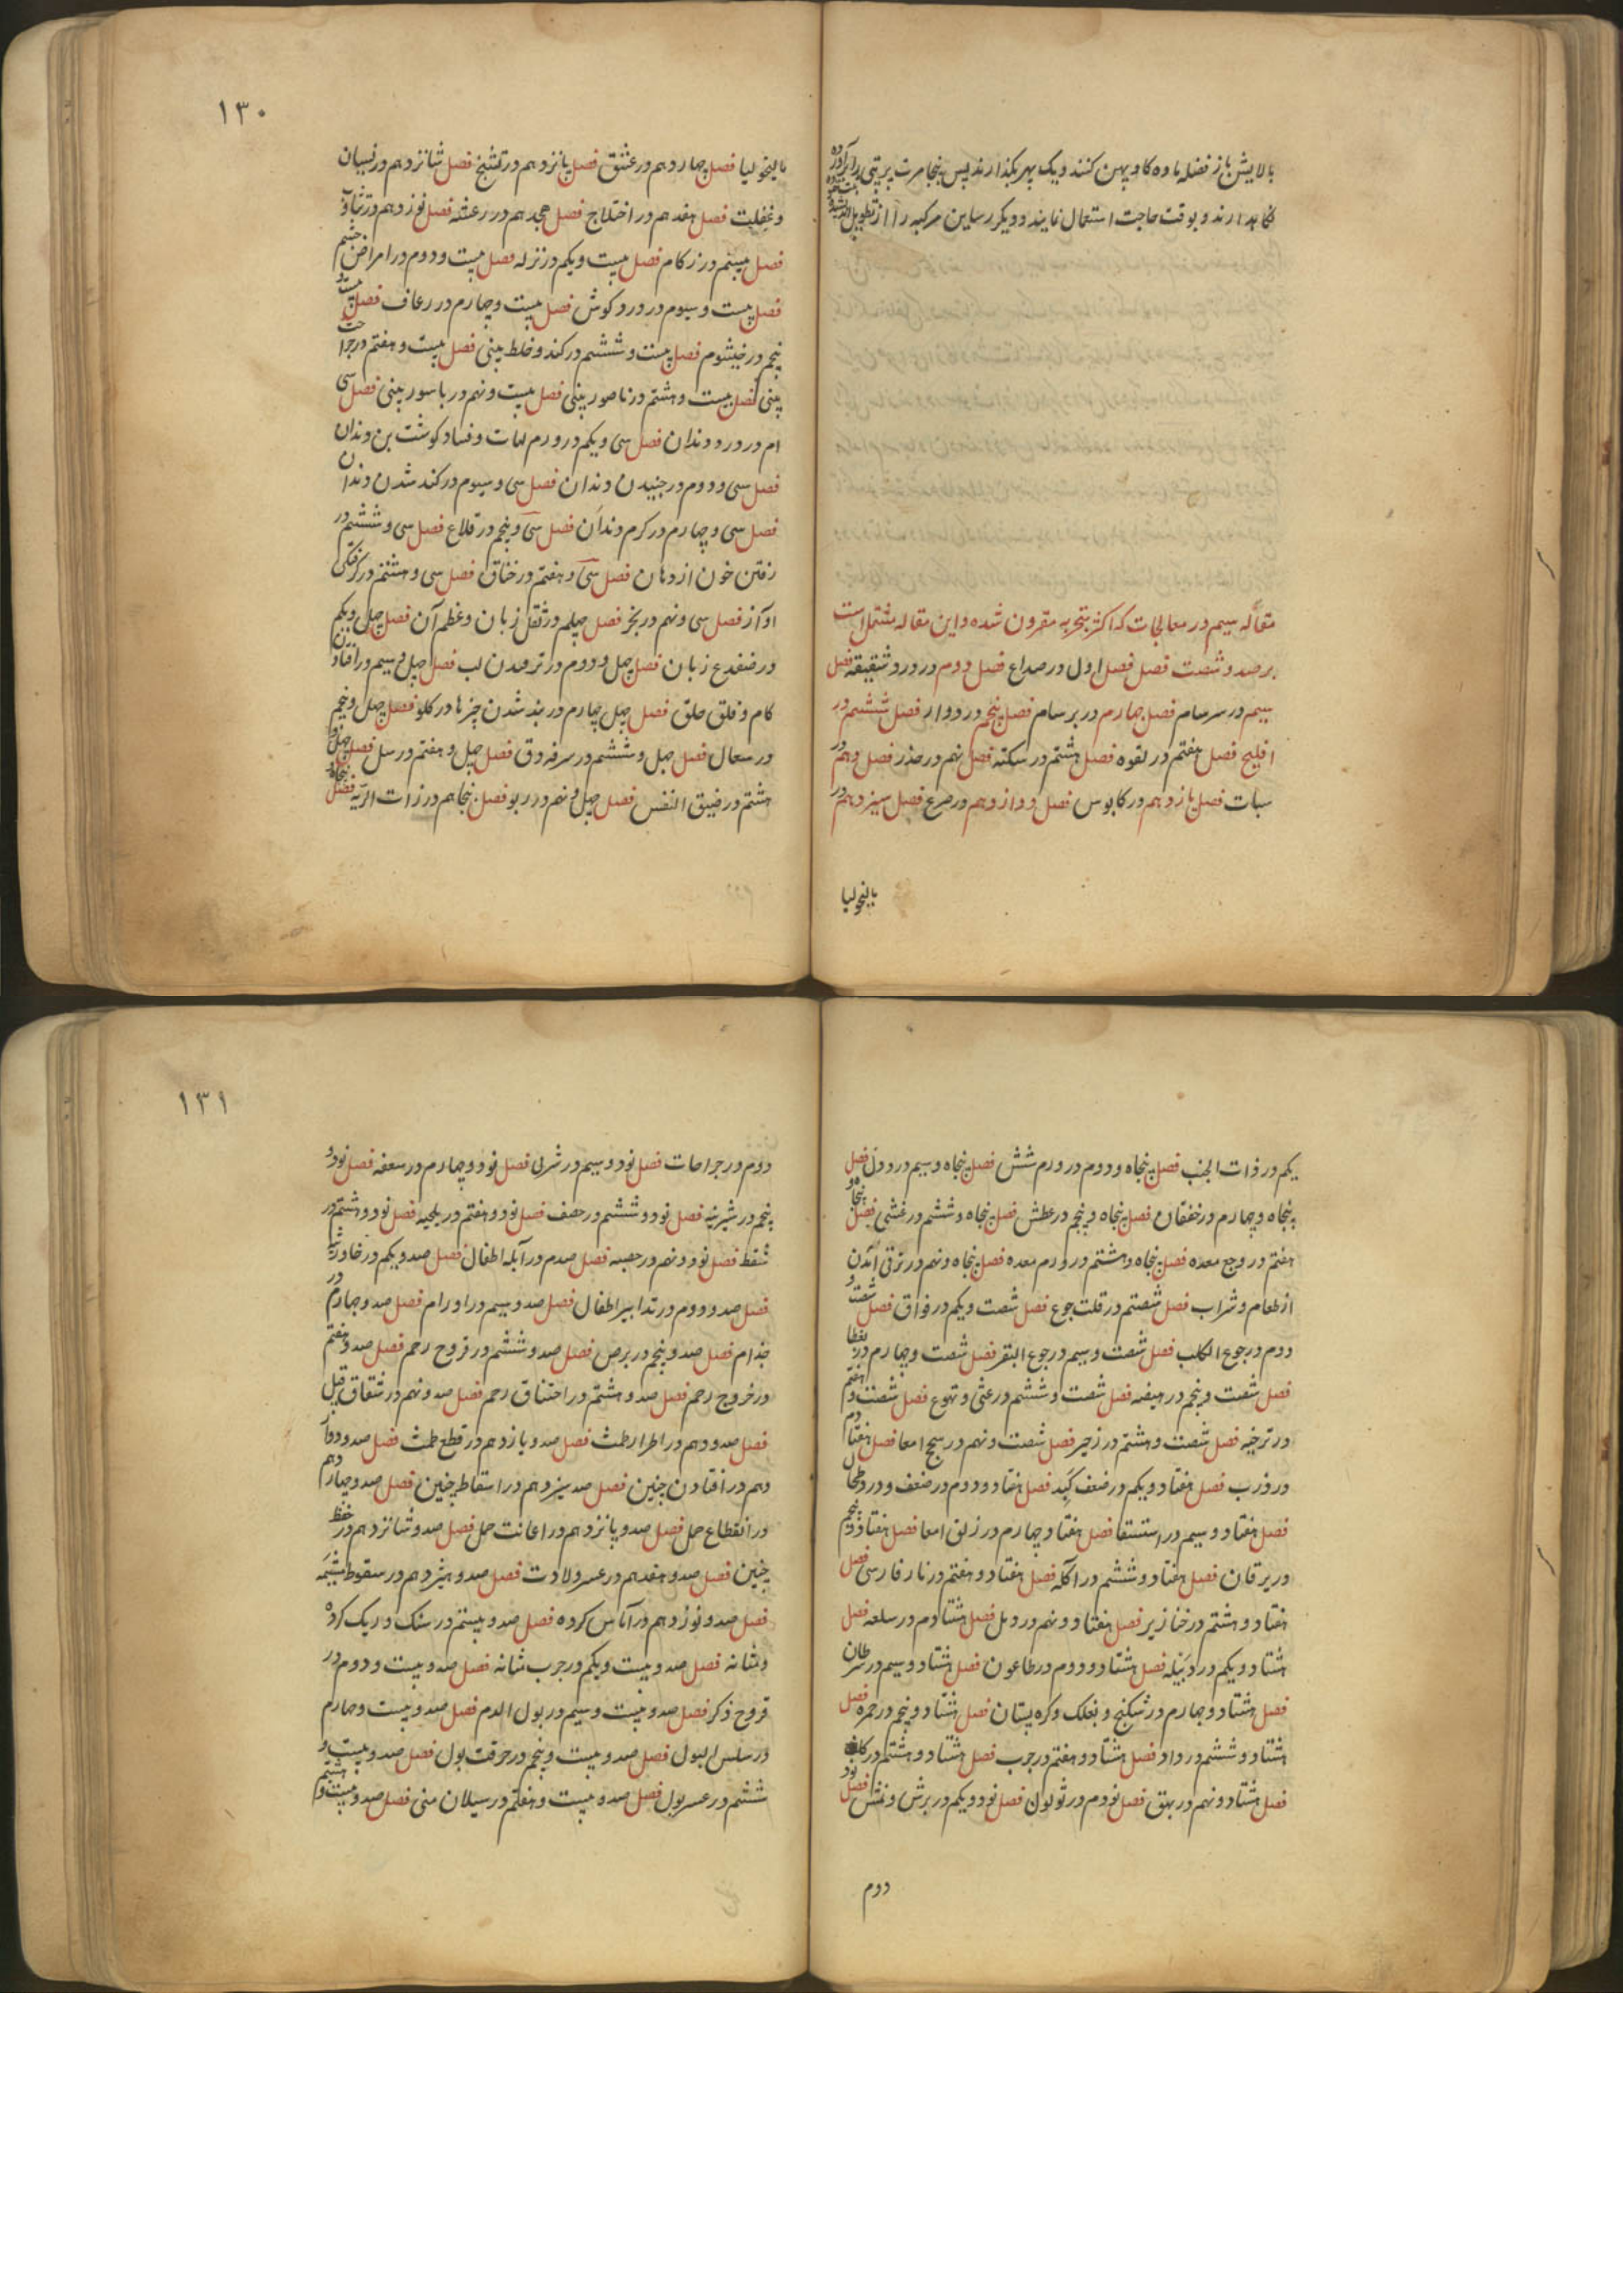 بالایش باز فضله ماده کاو پهن کنند و یک پهر بگذارند پس پنجا مرت پرپتی برابر آورده
نگاهدارند و بوقت حاجت استعمال نمایند و دیگر رساین مرکبه را از تطویل
مقاله سیم در معالجات که اکثر بتجربه مقرون شده و این مقاله مشتمل است
بر صد و شصت فصل فصل اول در صداع فصل دوم در درد شقیقه فصل
سیم در سرسام فصل چهارم در برسام فصل پنجم در دوار فصل ششم در
افلیج فصل هفتم در لقوه فصل هشتم در سکته فصل نهم در خدر فصل دهم در
سبات فصل یازدهم در کابوس فصل دوازدهم در صرع فصل سیزدهم در
مالیخولیا
۱۳۰
مالیخولیا فصل چهاردهم در عشق فصل پانزدهم در تشنج فصل شانزدهم در نسیان
و غفلت فصل هفدهم در اختلاج فصل هجدهم در رعشه فصل نوزدهم در تثاوب
فصل بیستم در زکام فصل بیست و یکم در نزله فصل بیست و دوم در امراض چشم
فصل بیست و سیوم در درد کوش فصل بیست و چهارم در رعاف فصل بیست و
پنجم در خیشوم فصل بیست و ششم در کند و غلط بینی فصل بیست و هفتم در جراحت
بینی فصل بیست و هشتم در ناصور بینی فصل بیست و نهم در باسور بینی فصل سی
ام در درد دندان فصل سی و یکم در ورم لهات و فساد کوشت بن دندان
فصل سی و دوم در جنبیدن دندان فصل سی و سیوم در کند شدن دندان
فصل سی و چهارم در کرم دندان فصل سی و پنجم در قلاع فصل سی و ششم در
رفتن خون از دهان فصل سی و هفتم در خناق فصل سی و هشتم در گرفتگی
آواز فصل سی و نهم در بخر فصل چهلم در ثقل زبان و عظم آن فصل چهل و یکم
در ضفدع زبان فصل چهل و دوم در ترقیدن لب فصل چهل و سیم در افتادن
کام و فلق حلق فصل چهل چهارم در بند شدن چیزها در کلو فصل چهل و پنجم
در سعال فصل چهل و ششم در سرفه دق فصل چهل و هفتم در سل فصل چهل و
هشتم در ضیق النفس فصل چهل و نهم در ربو فصل پنجاهم در ذات الریه فصل پنجاه و
یکم در ذات الجنب فصل پنجاه و دوم در ورم شش فصل پنجاه و سیم در دق فصل
پنجاه و چهارم در خفقان فصل پنجاه و پنجم در عطش فصل پنجاه و ششم در غشی فصل پنجاه و
هفتم در وجع معده فصل پنجاه و هشتم در ورم معده فصل پنجاه و نهم در ترقی آمدن
از طعام و شراب فصل شصتم در قلت جوع فصل شصت و یکم در فواق فصل شصت و
دوم در جوع الکلب فصل شصت و سیم در جوع البقر فصل شصت و چهارم در
فصل شصت و پنجم در هیضه فصل شصت و ششم در غثی و تهوع فصل شصت و هفتم
در ترخیه فصل شصت و هشتم در زحیر فصل شصت و نهم در سحج امعا فصل هفتادم
در ذرب فصل هفتاد و یکم در ضعف کبد فصل هفتاد و دوم در ضعف و درد طحال
فصل هفتاد و سیم در استسقا فصل هفتاد و چهارم در زلق امعا فصل هفتاد و پنجم
در یرقان فصل هفتاد و ششم در آکله فصل هفتاد و هفتم در نار فارسی فصل
هفتاد و هشتم در خنازیر فصل هفتاد و نهم در دمل فصل هشتادم در سلعه فصل
هشتاد و یکم در دبیله فصل هشتاد و دوم در طاعون فصل هشتاد و سیم در سرطان
فصل هشتاد و چهارم در شکنج و بغلک و کره پستان فصل هشتاد و پنجم در حمره فصل
هشتاد و ششم در داد فصل هشتاد و هفتم در جرب فصل هشتاد و هشتم در
فصل هشتاد و نهم در بهق فصل نودم در ثولول فصل نود و یکم در برش و نمش فصل نود و
دوم
۱۳۱
دوم در جراحات فصل نود و سیم در شری فصل نود و چهارم در سعفه فصل نود و
پنجم در شیرینه فصل نود و ششم در حصف فصل نود و هفتم در بلخیه فصل نود و هشتم در
شفط فصل نود و نهم در حصبه فصل صدم در آبله اطفال فصل صد و یکم در خاورشه
فصل صد و دوم در تدابیر اطفال فصل صد و سیم در اورام فصل صد و چهارم در
جذام فصل صد و پنجم در برص فصل صد و ششم در قروح رحم فصل صد و هفتم
در خروج رحم فصل صد و هشتم در اختناق رحم فصل صد و نهم در شقاق قبل
فصل صد و دهم در اطرار طمث فصل صد و یازدهم در قطع طمث فصل صد و دوا
دهم در افتادن جنین فصل صد سیزدهم در اسقاط جنین فصل صد و چهاردهم
در انقطاع حمل فصل صد و پانزدهم در اعانت حمل فصل صد و شانزدهم در حفظ
جنین فصل صد و هفدهم در عسر ولادت فصل صد و هیژدهم در سقوط مشیمه
فصل صد و نوزدهم در آماس کرده فصل صد و بیستم در سنک و ریک کرده
و مثانه فصل صد و بیست و یکم در جرب مثانه فصل صد و بیست و دوم در
قروح ذکر فصل صد و بیست و سیم در بول الدم فصل صد و بیست و چهارم
در سلس البول فصل صد و بیست و پنجم در حرقت بول فصل صد و بیست و
ششم در عسر بول فصل صد و بیست و هفتم در سیلان منی فصل صد و بیست و هشتم